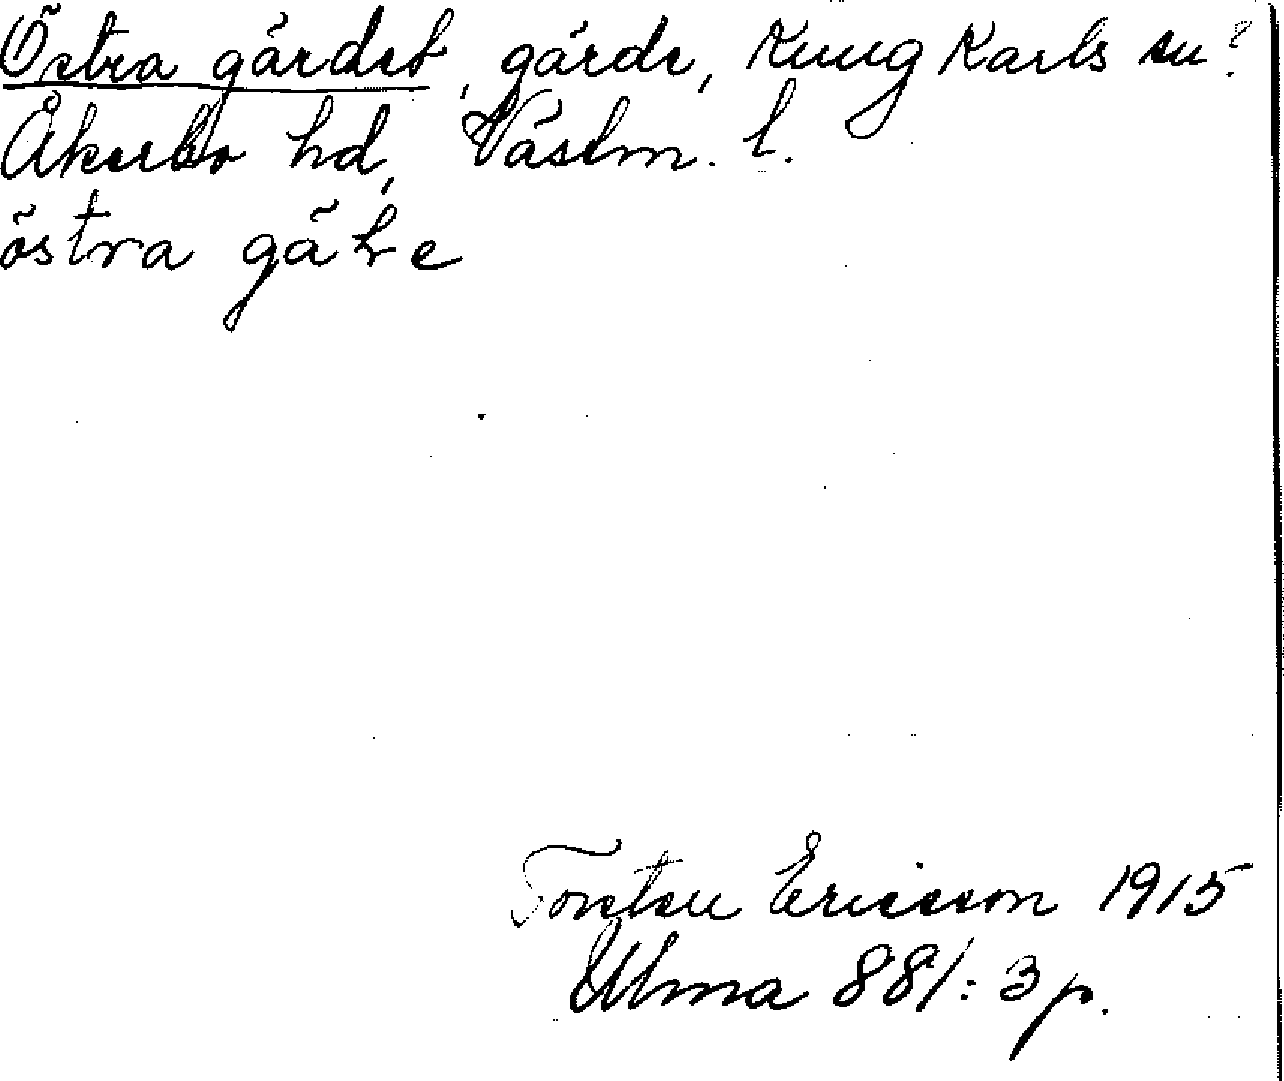 Östra gärdet, gärde, Kung Karls sn?
Åkerbo hd, Västm. l.
östra gäƚe
Torsten Ericsson 1915
Ulma 881: 3 p.